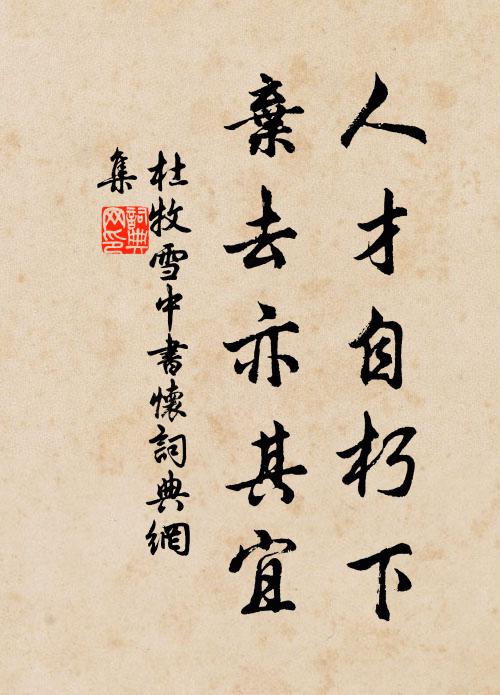 人才自朽下
棄去亦其宜
杜牧雪中書懷詞典網
集
詞典網印